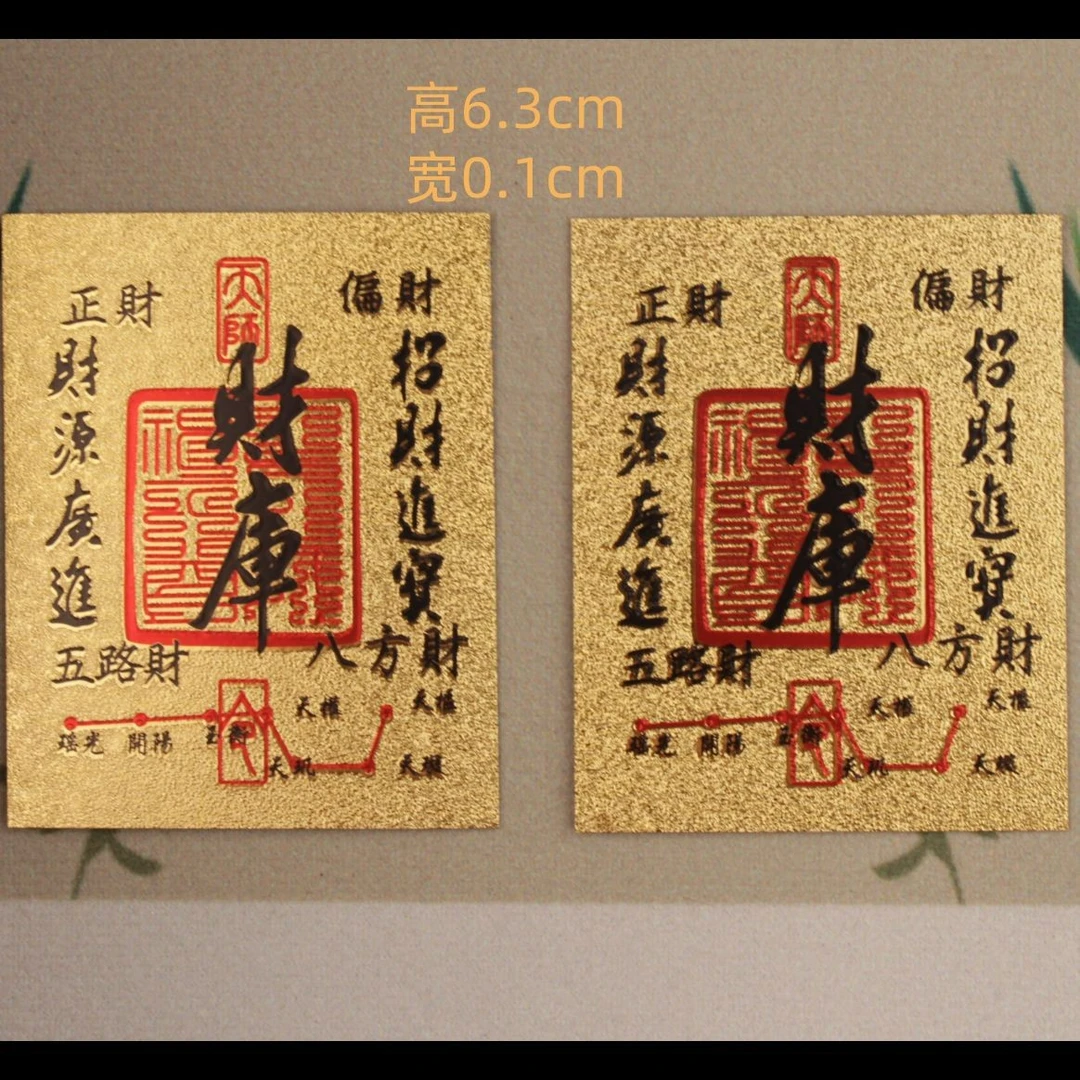 高6.3cm
宽0.1cm
天師
正財
偏財
財庫
財源廣進
招財進寶
五路財
八方財
天權
天樞
瑶光
開陽
玉衡
天璣
天璇
天師
正財
偏財
財庫
財源廣進
招財進寶
五路財
八方財
天權
天樞
瑶光
開陽
玉衡
天璣
天璇